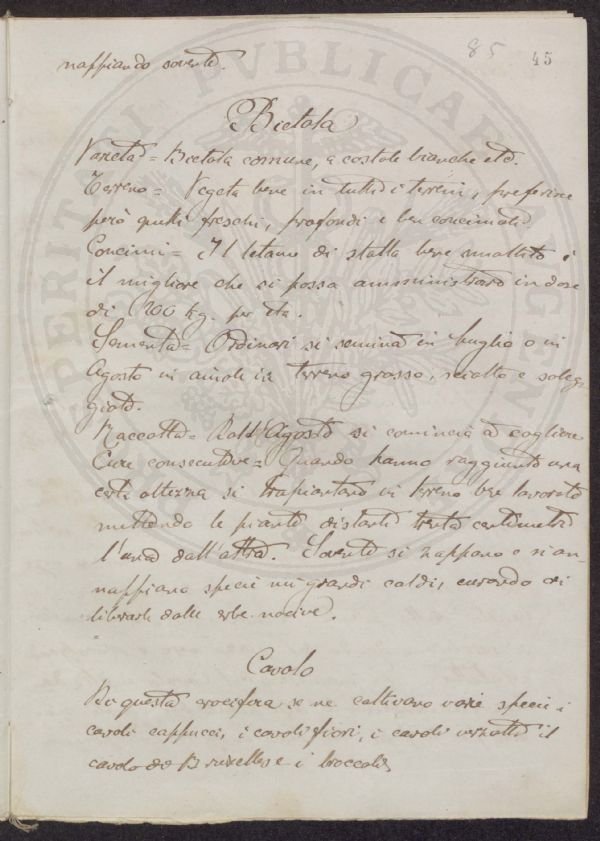 85 45
naffiando sovente.
Bietola
Varietà = Bietola comune, a costole bianche etc.
Terreno = Vegeta bene in tutti i terreni, preferisce
però quelli freschi, profondi e ben concimati
Concimi = Il letame di stalla bene smaltito è
il migliore che si possa amministrare in dose
di 200 kg. per
Sementa = Ordinari si semina in luglio o in
Agosto in aiuole in terreno grasso, sciolto e soleg-
giato.
Raccolta = Dall'Agosto si comincia a cogliere
Cure consecutive = Quando hanno raggiunto una
certa altezza si trapiantano in terreno ben lavorato
mettendo le piante distanti trenta centimetri
l'una dall'altra. Sovente si zappano e si an-
naffiano specie nei grandi caldi, curando di
librarle dalle erbe nocive.
Cavolo
Di questa crocifera se ne coltivano varie specie i
cavoli cappucci, i cavoli fiori, i cavoli verzotti il
cavolo de Bruxelles e i broccoli
PERITATI PVBLICAE AVGEN